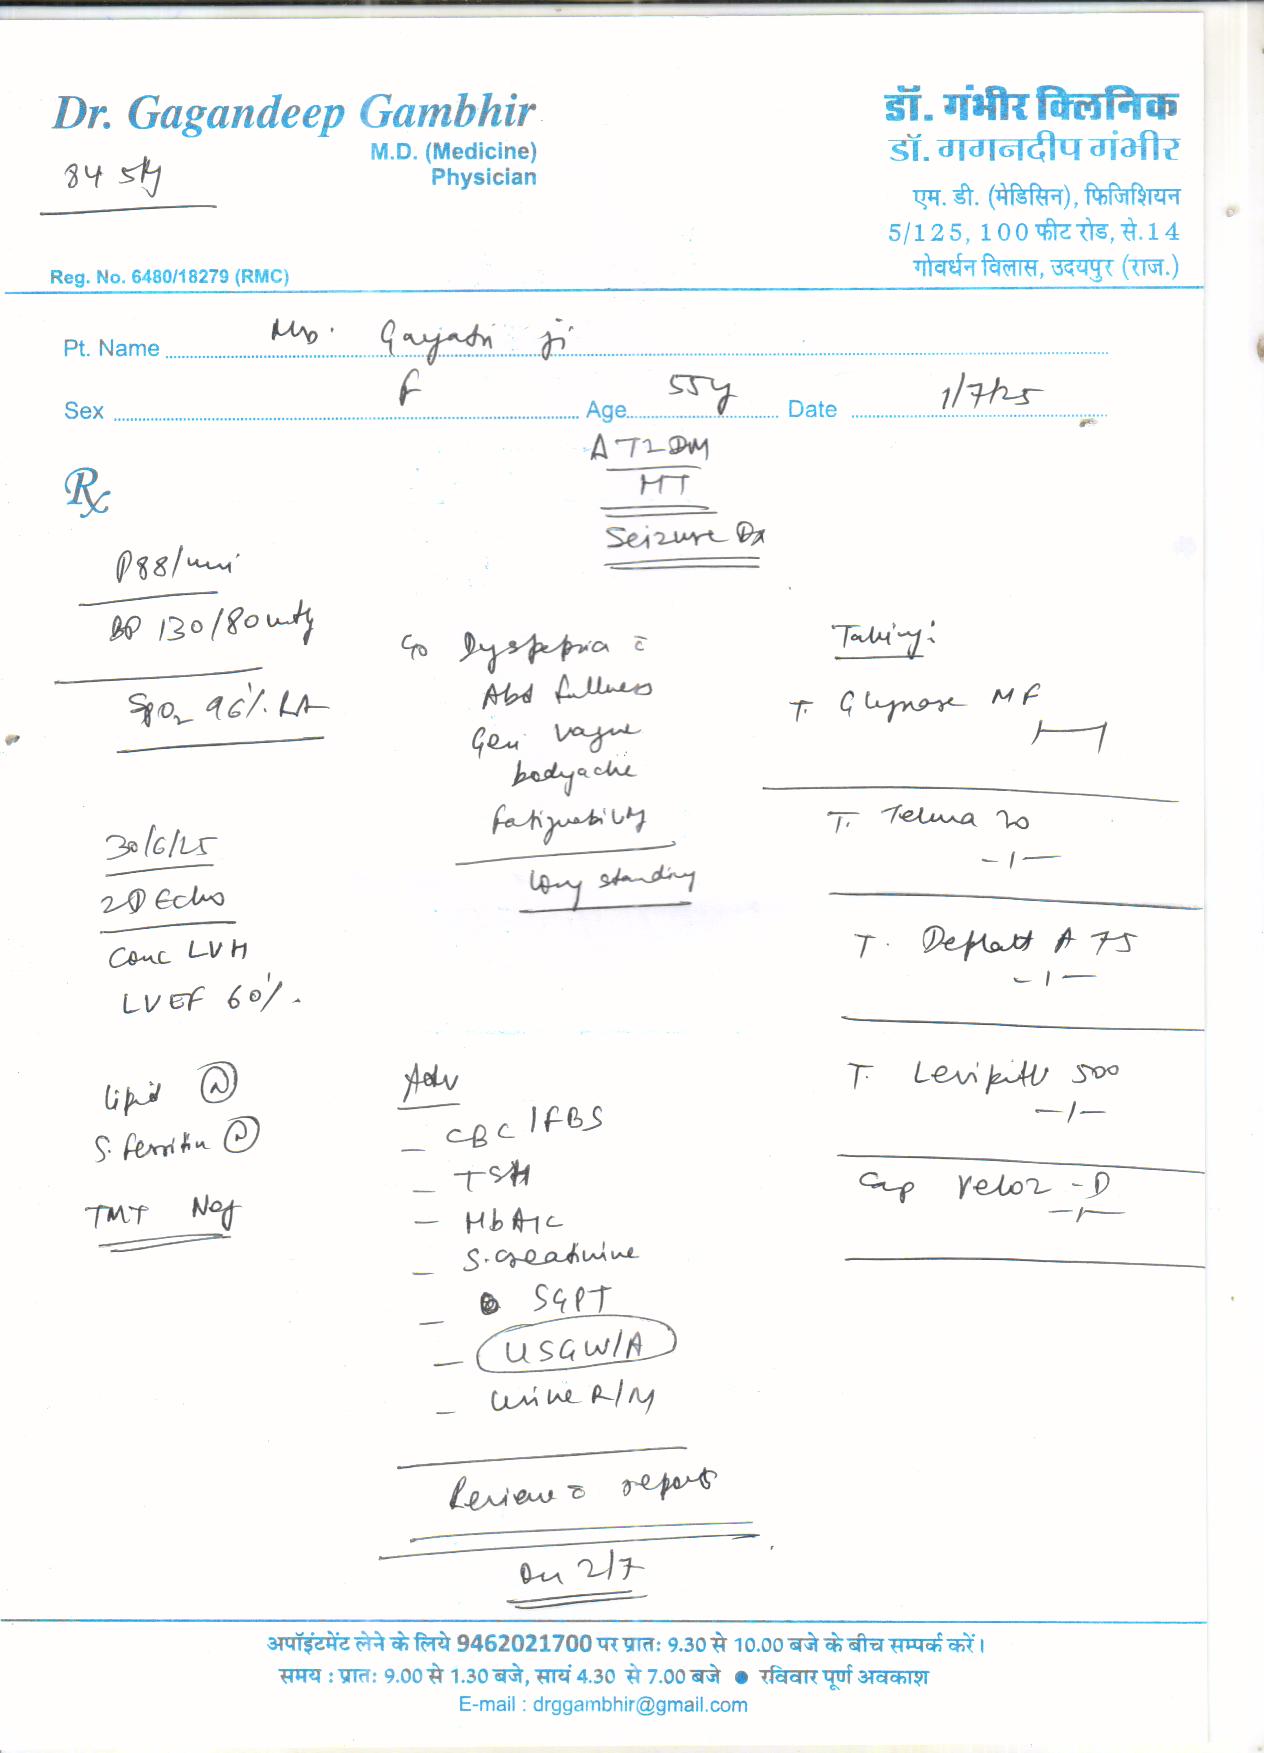 Dr. Gagandeep Gambhir
M.D. (Medicine)
Physician
84
Reg. No. 6480/18279 (RMC)
डॉ. गंभीर क्लिनिक
डॉ. गगनदीप गंभीर
एम. डी. (मेडिसिन), फिजिशियन
5/125, 100 फीट रोड, से.14
गोवर्धन विलास, उदयपुर (राज.)
Pt. Name Gayatri ji
Sex F Age 55y Date 1/7/25
T2DM
HT
Seizure
Rx
P 88/min
BP 130/80 mmHg
SpO2 96% RA
30/6/25
2D Echo
Conc LVH
LVEF 60%
Lipid N
S. ferritin N
TMT Neg
C/o Dyspepsia c̄
Abd fullness
Gen vague
bodyache
fatiguability
Long standing
Adv
- CBC / FBS
- TSH
- HbA1C
- S. creatinine
- SGPT
- USG W/A
- Urine R/M
Review c̄ reports
On 2/7
Taking:
T. Glynase MF
T. Telma 20
-1-
T. Deplatt A 75
-1-
T. Levipil 500
-1-
Cap Veloz-D
-1-
अपॉइंटमेंट लेने के लिये 9462021700 पर प्रातः 9.30 से 10.00 बजे के बीच सम्पर्क करें।
समय : प्रातः 9.00 से 1.30 बजे, सायं 4.30 से 7.00 बजे ● रविवार पूर्ण अवकाश
E-mail : drggambhir@gmail.com